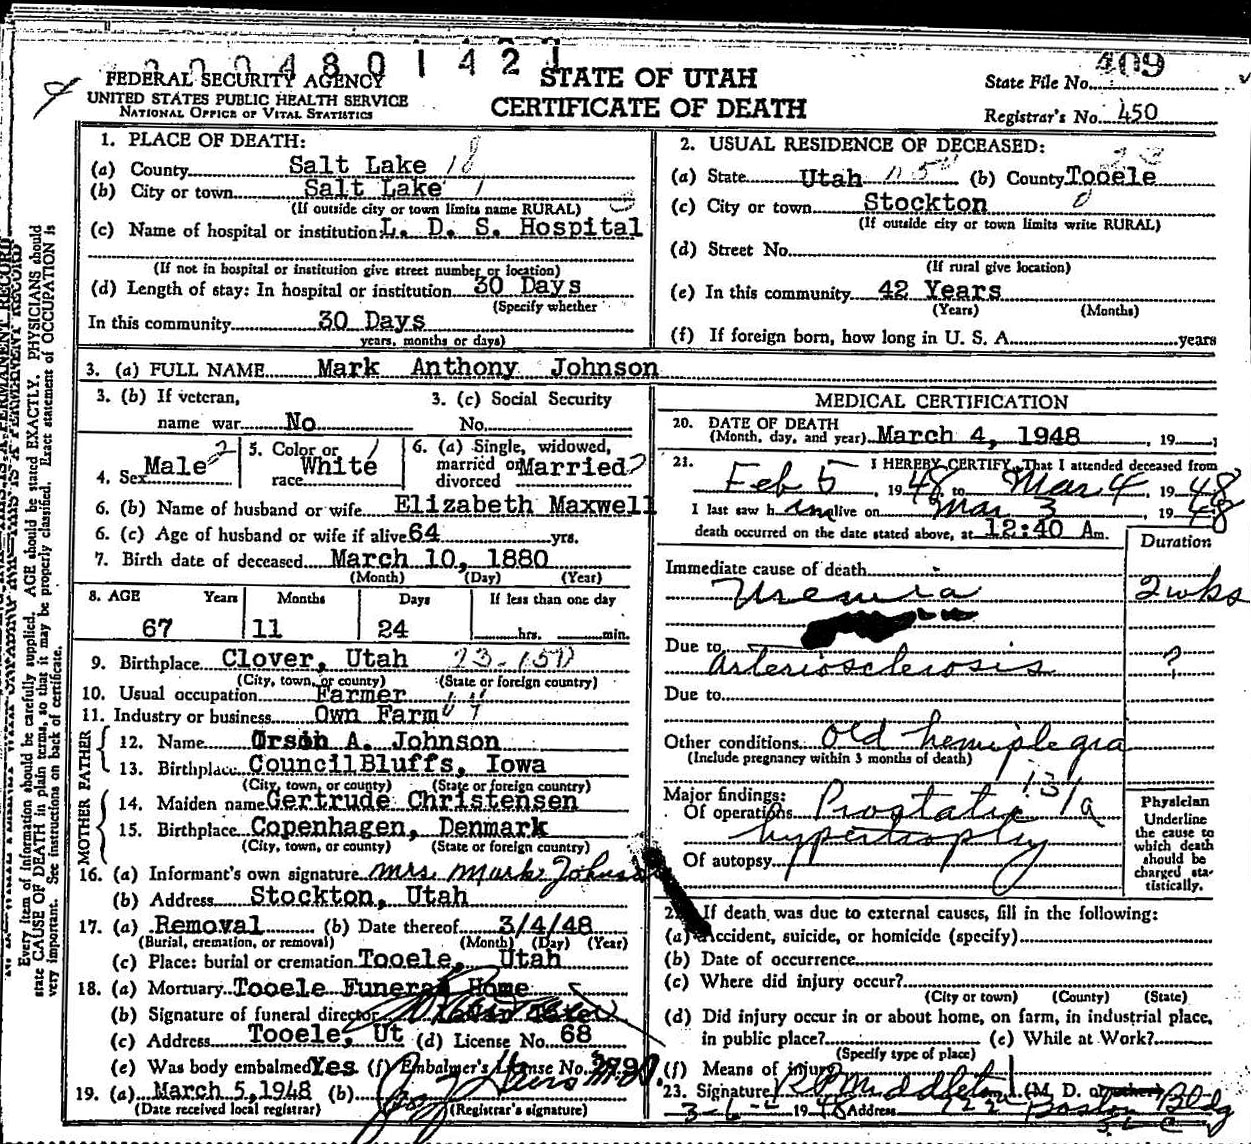 0004801421
FEDERAL SECURITY AGENCY
UNITED STATES PUBLIC HEALTH SERVICE
NATIONAL OFFICE OF VITAL STATISTICS
STATE OF UTAH
CERTIFICATE OF DEATH
State File No. 409
Registrar's No. 450
1. PLACE OF DEATH:
(a) County Salt Lake 18
(b) City or town Salt Lake 1
(If outside city or town limits name RURAL)
(c) Name of hospital or institution L. D. S. Hospital
(If not in hospital or institution give street number or location)
(d) Length of stay: In hospital or institution 30 Days
(Specify whether
In this community 30 Days
years, months or days)
2. USUAL RESIDENCE OF DECEASED:
(a) State Utah (b) County Tooele
(c) City or town Stockton
(If outside city or town limits write RURAL)
(d) Street No.
(If rural give location)
(e) In this community 42 Years
(Years) (Months)
(f) If foreign born, how long in U. S. A. years
3. (a) FULL NAME Mark Anthony Johnson
3. (b) If veteran, 3. (c) Social Security
name war No No.
4. Sex Male 2 5. Color or race White 1 6. (a) Single, widowed, married or divorced Married 2
6. (b) Name of husband or wife Elizabeth Maxwell
6. (c) Age of husband or wife if alive 64 yrs.
7. Birth date of deceased March 10, 1880
(Month) (Day) (Year)
8. AGE Years Months Days If less than one day
67 11 24 hrs. min.
9. Birthplace Clover, Utah
(City, town, or county) (State or foreign country)
10. Usual occupation Farmer
11. Industry or business Own Farm
FATHER
12. Name Orson A. Johnson
13. Birthplace Council Bluffs, Iowa
(City, town, or county) (State or foreign country)
MOTHER
14. Maiden name Gertrude Christensen
15. Birthplace Copenhagen, Denmark
(City, town, or county) (State or foreign country)
16. (a) Informant's own signature Mrs. Mark Johnson
(b) Address Stockton, Utah
17. (a) Removal (b) Date thereof 3/4/48
(Burial, cremation, or removal) (Month) (Day) (Year)
(c) Place: burial or cremation Tooele, Utah
18. (a) Mortuary Tooele Funeral Home
(b) Signature of funeral director
(c) Address Tooele, Ut (d) License No. 68
(e) Was body embalmed Yes (f) Embalmer's License No.
19. (a) March 5, 1948 (b)
(Date received local registrar) (Registrar's signature)
MEDICAL CERTIFICATION
20. DATE OF DEATH
(Month, day, and year) March 4, 1948, 19
21. I HEREBY CERTIFY, That I attended deceased from
Feb 5, 1948 to Mar 4 1948
I last saw h im alive on Mar 3 1948
death occurred on the date stated above, at 12:40 Am.
Duration
Immediate cause of death
Uremia 2 wks
Due to
Arteriosclerosis ?
Due to
Other conditions Old hemiplegia
(Include pregnancy within 3 months of death)
131a
Major findings:
Of operations Prostatic
hypertrophy
Of autopsy
Physician
Underline
the cause to
which death
should be
charged sta-
tistically.
If death was due to external causes, fill in the following:
(a) Accident, suicide, or homicide (specify)
(b) Date of occurrence
(c) Where did injury occur?
(City or town) (County) (State)
(d) Did injury occur in or about home, on farm, in industrial place,
in public place? (e) While at Work?
(Specify type of place)
(f) Means of injury
23. Signature R P Middleton (M. D. or other)
3-6- 1948 Address 722 Boston Bldg
S L C
Every item of information should be carefully supplied. AGE should be stated EXACTLY. PHYSICIANS should
state CAUSE OF DEATH in plain terms, so that it may be properly classified. Exact statement of OCCUPATION is
very important. See instructions on back of certificate.